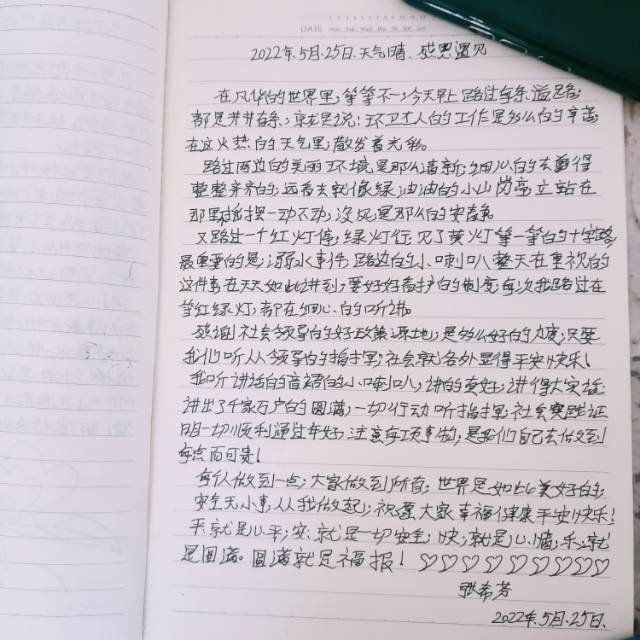 DATE
2022年.5月.25日.天气晴.感恩遇见
在凡华的世界里,等等不一,今天早上路过每条道路
都是井井有条,就是说:环卫工人的工作是多么的辛苦
在这火热的天气里,散发着光彩。
路过两边的美丽环境是那么清新;细心的去剪得
整整齐齐的,远看去就像绿油油的小山岗亭立站在
那里指挥一动不动,没见是那么的安静。
又路过一个红灯停,绿灯行,见了黄灯等一等的十字路,
最重要的是,溺水事件,路边的小喇叭整天在重视的
这件事在天天如此讲到,要好好看护的制度,每次我路过在
等红绿灯,都在细心.的听讲。
感谢社会领导的好政策源地,是多么好的力度,只要
我们听从领导的指挥,社会就各外显得平安快乐!
我听讲话的高调的小喇叭,讲的真好,讲得大实话
讲出了千家万户的圆满,一切行动听指挥,社会实践证
明一切顺利通过年好.注意每项事物,是我们自己去做到
每点而可贵!
每人做到一点,大家做到所有,世界是如此美好的
安全无小事,从我做起,祝愿大家幸福健康平安快乐!
平,就是心平,安.就是一切安全,快,就是心情,乐,就
是圆满。圆满就是福报!♡♡♡♡♡♡♡♡♡
张希芳
2022年.5月.25日.